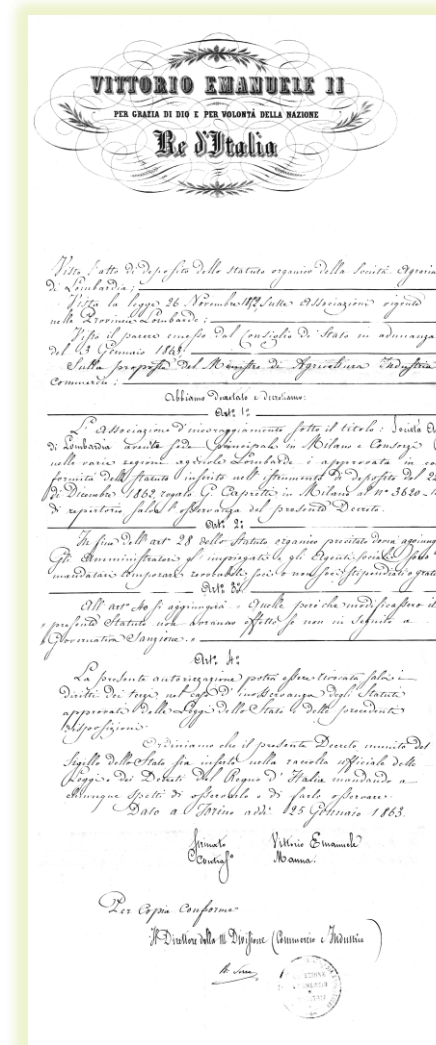 VITTORIO EMANUELE II
PER GRAZIA DI DIO E PER VOLONTÀ DELLA NAZIONE
Re d'Italia
Visto l'atto di deposito dello statuto organico della Società Agraria
di Lombardia;
Vista la legge 26 Novembre sulle Associazioni vigente
nelle Provincie Lombarde;
Visto il parere emesso dal Consiglio di Stato in adunanza
del 3 Gennaio 1863;
Sulla proposta del Ministro di Agricoltura Industria
Commercio;
Abbiamo decretato e decretiamo:
Art.° 1°
L'Associazione d'incoraggiamento sotto il titolo: Società
di Lombardia avente sede principale in Milano e Consorzi
nelle varie regioni agricole Lombarde è approvata in con
formità dello Statuto inserito nell'istrumento di deposito del
di Dicembre 1862 rogato G. Capretti in Milano al N° 3620
di repertorio salva l'osservanza del presente Decreto.
Art.° 2°
In fine dell'art° 28 dello Statuto organico precitato dovrà
Gli Amministratori gl'impiegati e gli Agenti Sociali sono
mandatari temporari revocabili soci o non soci stipendiati o
Art.° 3°
All'art° 40 si aggiungerà "Quelle però che modificassero il
" presente Statuto non avranno effetto se non in seguito a
" Governativa Sanzione.
Art.° 4°
La presente autorizzazione potrà essere revocata salvi i
diritti dei terzi nel caso d'inosservanza degli Statuti
approvati delle Leggi dello Stato e delle precedenti
disposizioni
Ordiniamo che il presente Decreto munito del
Sigillo dello Stato sia inserto nella raccolta ufficiale delle
Leggi e dei Decreti del Regno d'Italia mandando a
chiunque spetti di osservarlo e di farlo osservare.
Dato a Torino addì 25 Gennaio 1863.
Firmato Vittorio Emanuele
Contrass° Manna.
Per Copia Conforme
Il Direttore della III Divisione (Commercio e Industria)